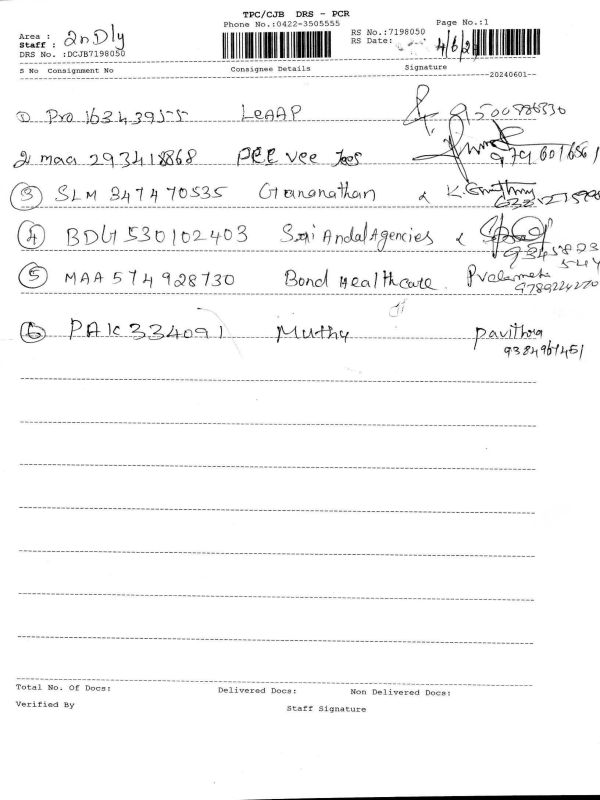 TPC/CJB DRS - PCR
Phone No.:0422-3505555 Page No.:1
Area : 2nDly RS No.:7198050
Staff : RS Date: 4/6/2
DRS No. :DCJB7198050
S No Consignment No Consignee Details Signature
20240601
① Pro 163439555 LeAAP 9500886330
2 maa 293418868 PEE Vee
③ SLM 347470535 Gunanathan
④ BDU 530102403 Sri Andal Agencies 9345823
544
⑤ MAA 574928730 Bond Healthcare
9789224270
⑥ PAK 334091 Muthy Pavithra
9384967451
Total No. Of Docs: Delivered Docs: Non Delivered Docs:
Verified By Staff Signature